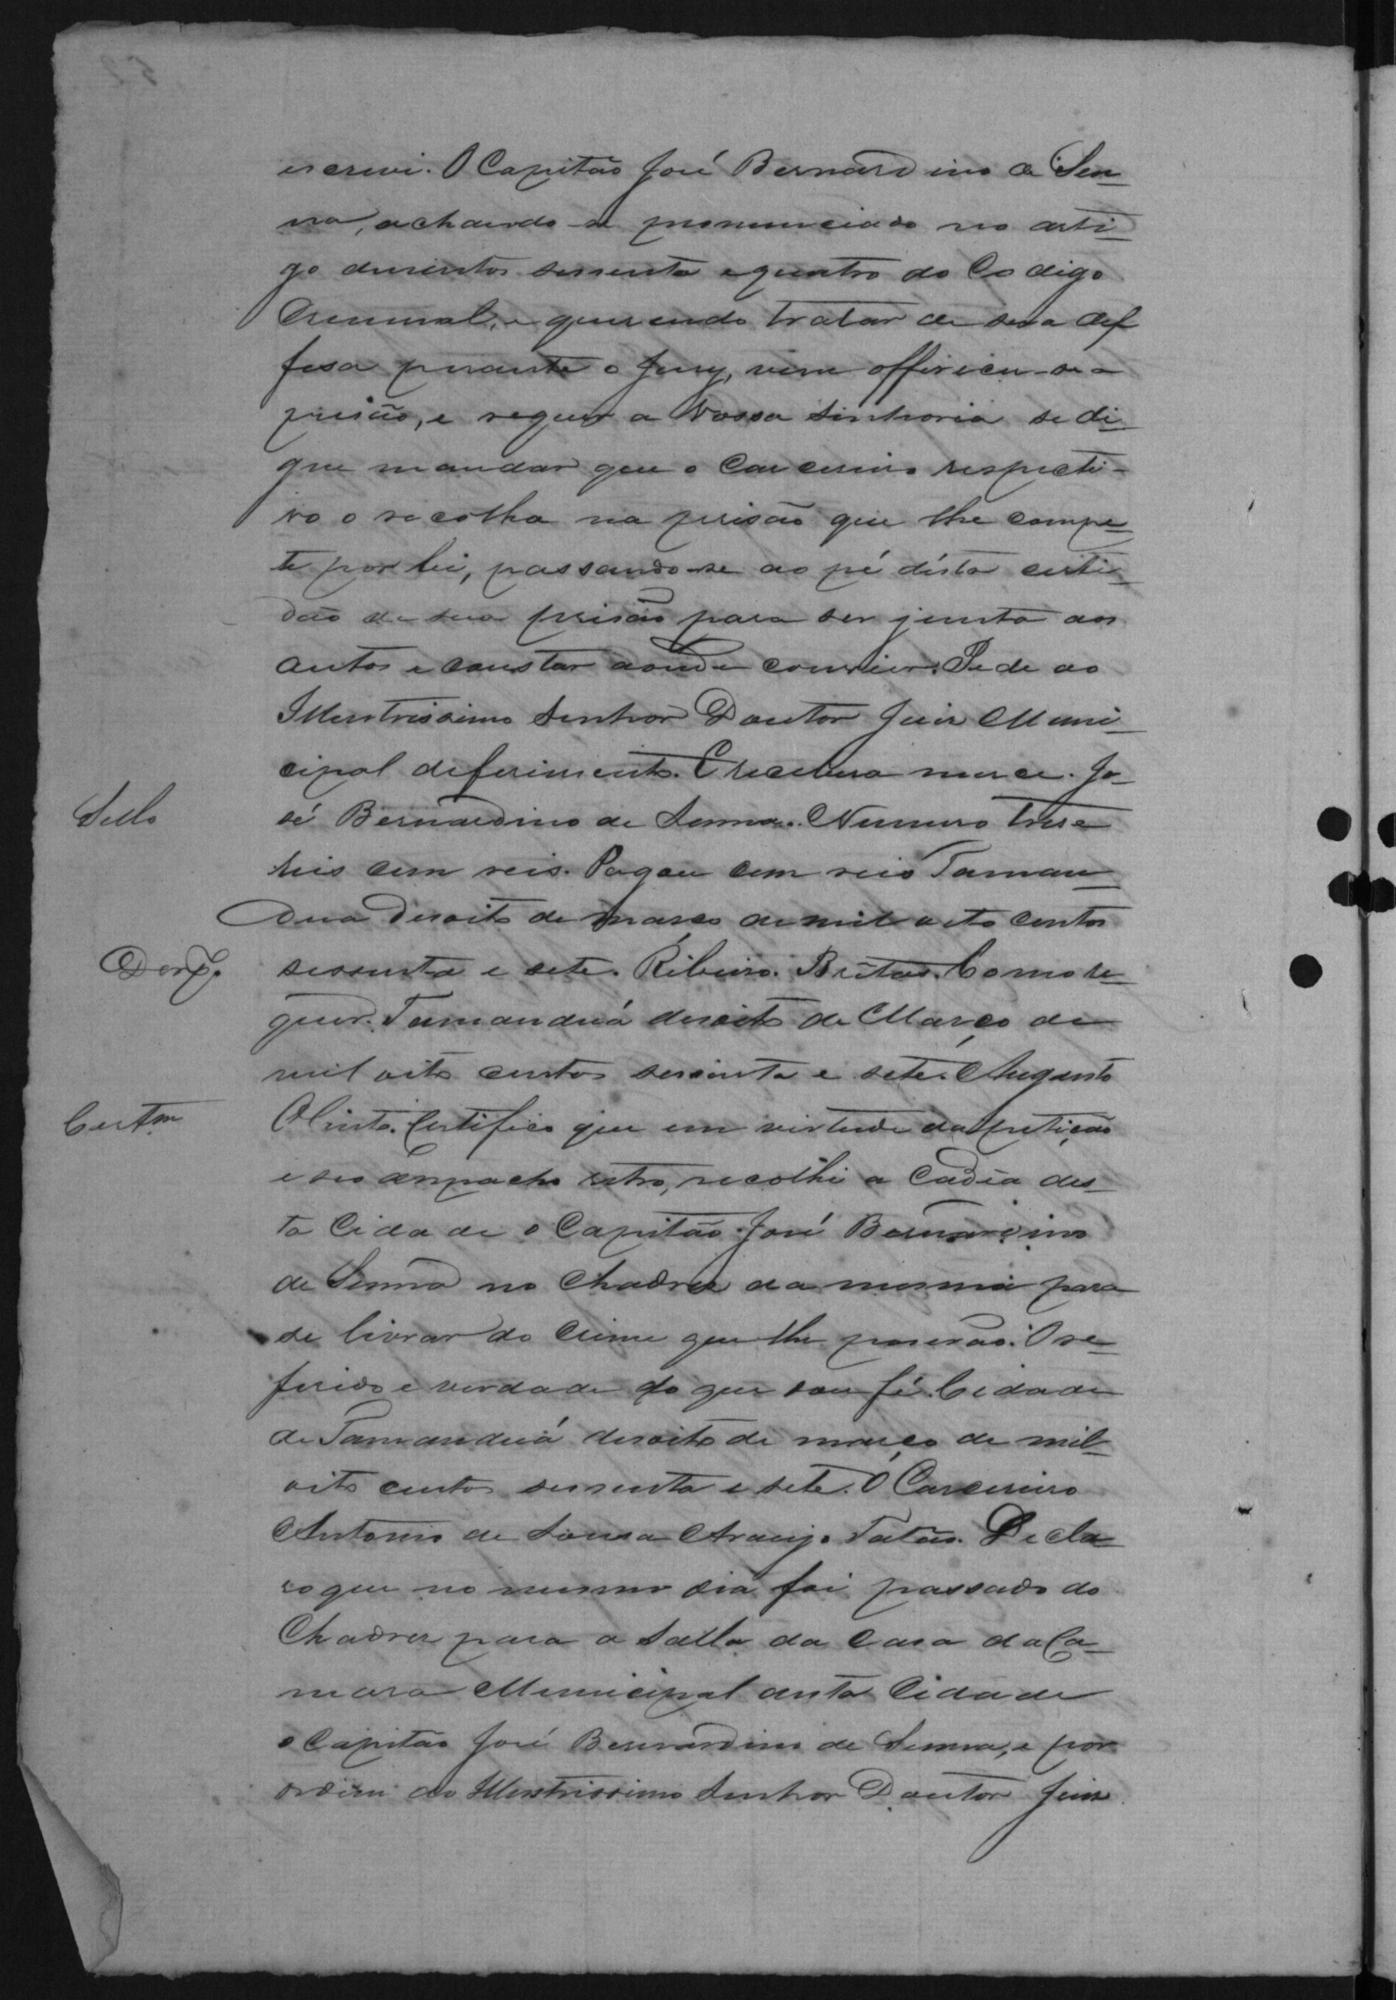 escrevi. O Capitão José Bernardino de Sen-
na, achando-se pronunciado no arti-
go dusentos sessenta e quatro do Codigo
Criminal, e querendo tratar de sua def
fesa perante o Jury, vem offerecer-se a
prisão, e requer a Vossa Senhoria se di-
gne mandar que o Carcereiro respecti-
vo o recolha na prisão que lhe compe-
te por lei, passando-se ao pé désta certi-
dão de sua prisão para ser junta aos
autos e constar aonde convier. Pede ao
Illustrissimo Senhor Doutor Juiz Muni-
cipal deferimento. E recebera merce. Jo-
Sello
sé Bernardino de Senna. Numero trese
reis cem reis. Pagou cem reis Taman-
dua desoito de março de mil oito centos
Desp.
sessenta e sete. Ribeiro. Britas. Como re-
quer. Tamanduá desoito de Março de
mil oito centos sessenta e sete. Augusto
Certam
Olinto. Certifico que em virtude da petição
e seo despacho retro, recolhi a Cadêa des-
ta Cidade o Capitão José Bernardino
de Senna no Chadrez da mesma para
se livrar do crime que lhe poserão. O re-
ferido e verdade do que dou fé. Cidade
de Tamanduá desoito de março de mil
oito centos sessenta e sete. O Carcereiro
Antonio de Sousa Araujo Tatão. Decla-
ro que no mesmo dia foi passado do
Chadrez para a Salla da Casa da Ca-
mara Municipal desta Cidade
o Capitão José Bernardino de Senna, e por
ordem do Illustrissimo Senhor Doutor Juiz